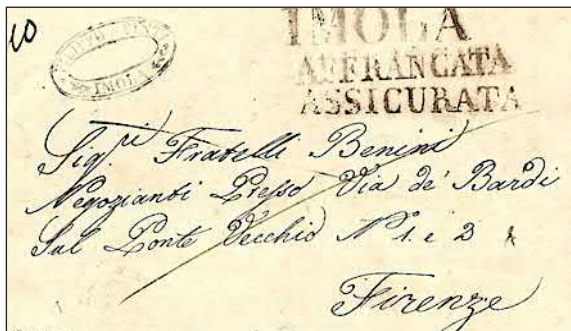 10
IMOLA
IMOLA
AFFRANCATA
ASSICURATA
Sig.ri Fratelli Benini
Negozianti Presso Via de' Bardi
Sul Ponte Vecchio N° 1. e 2
Firenze